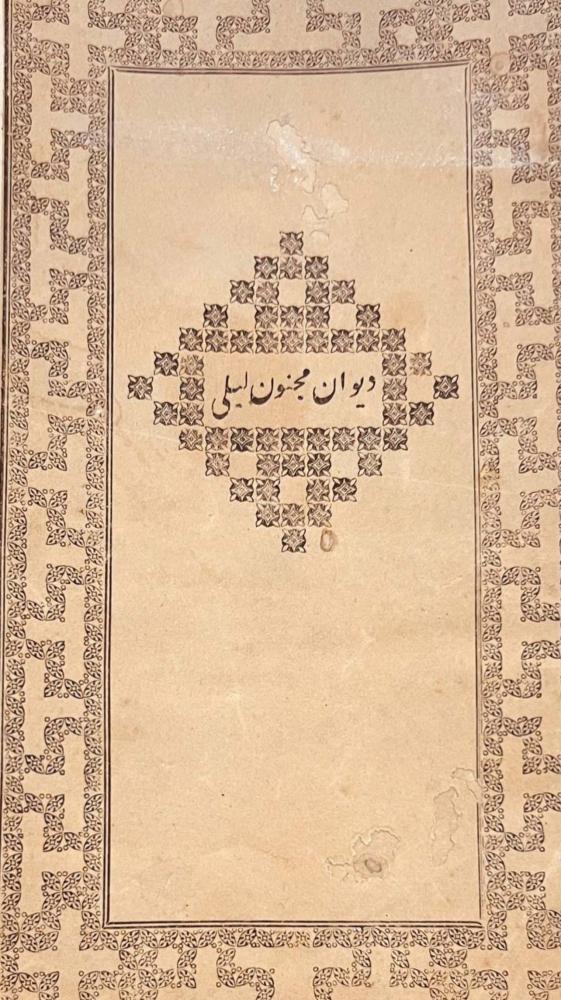 ديوان مجنون ليلى